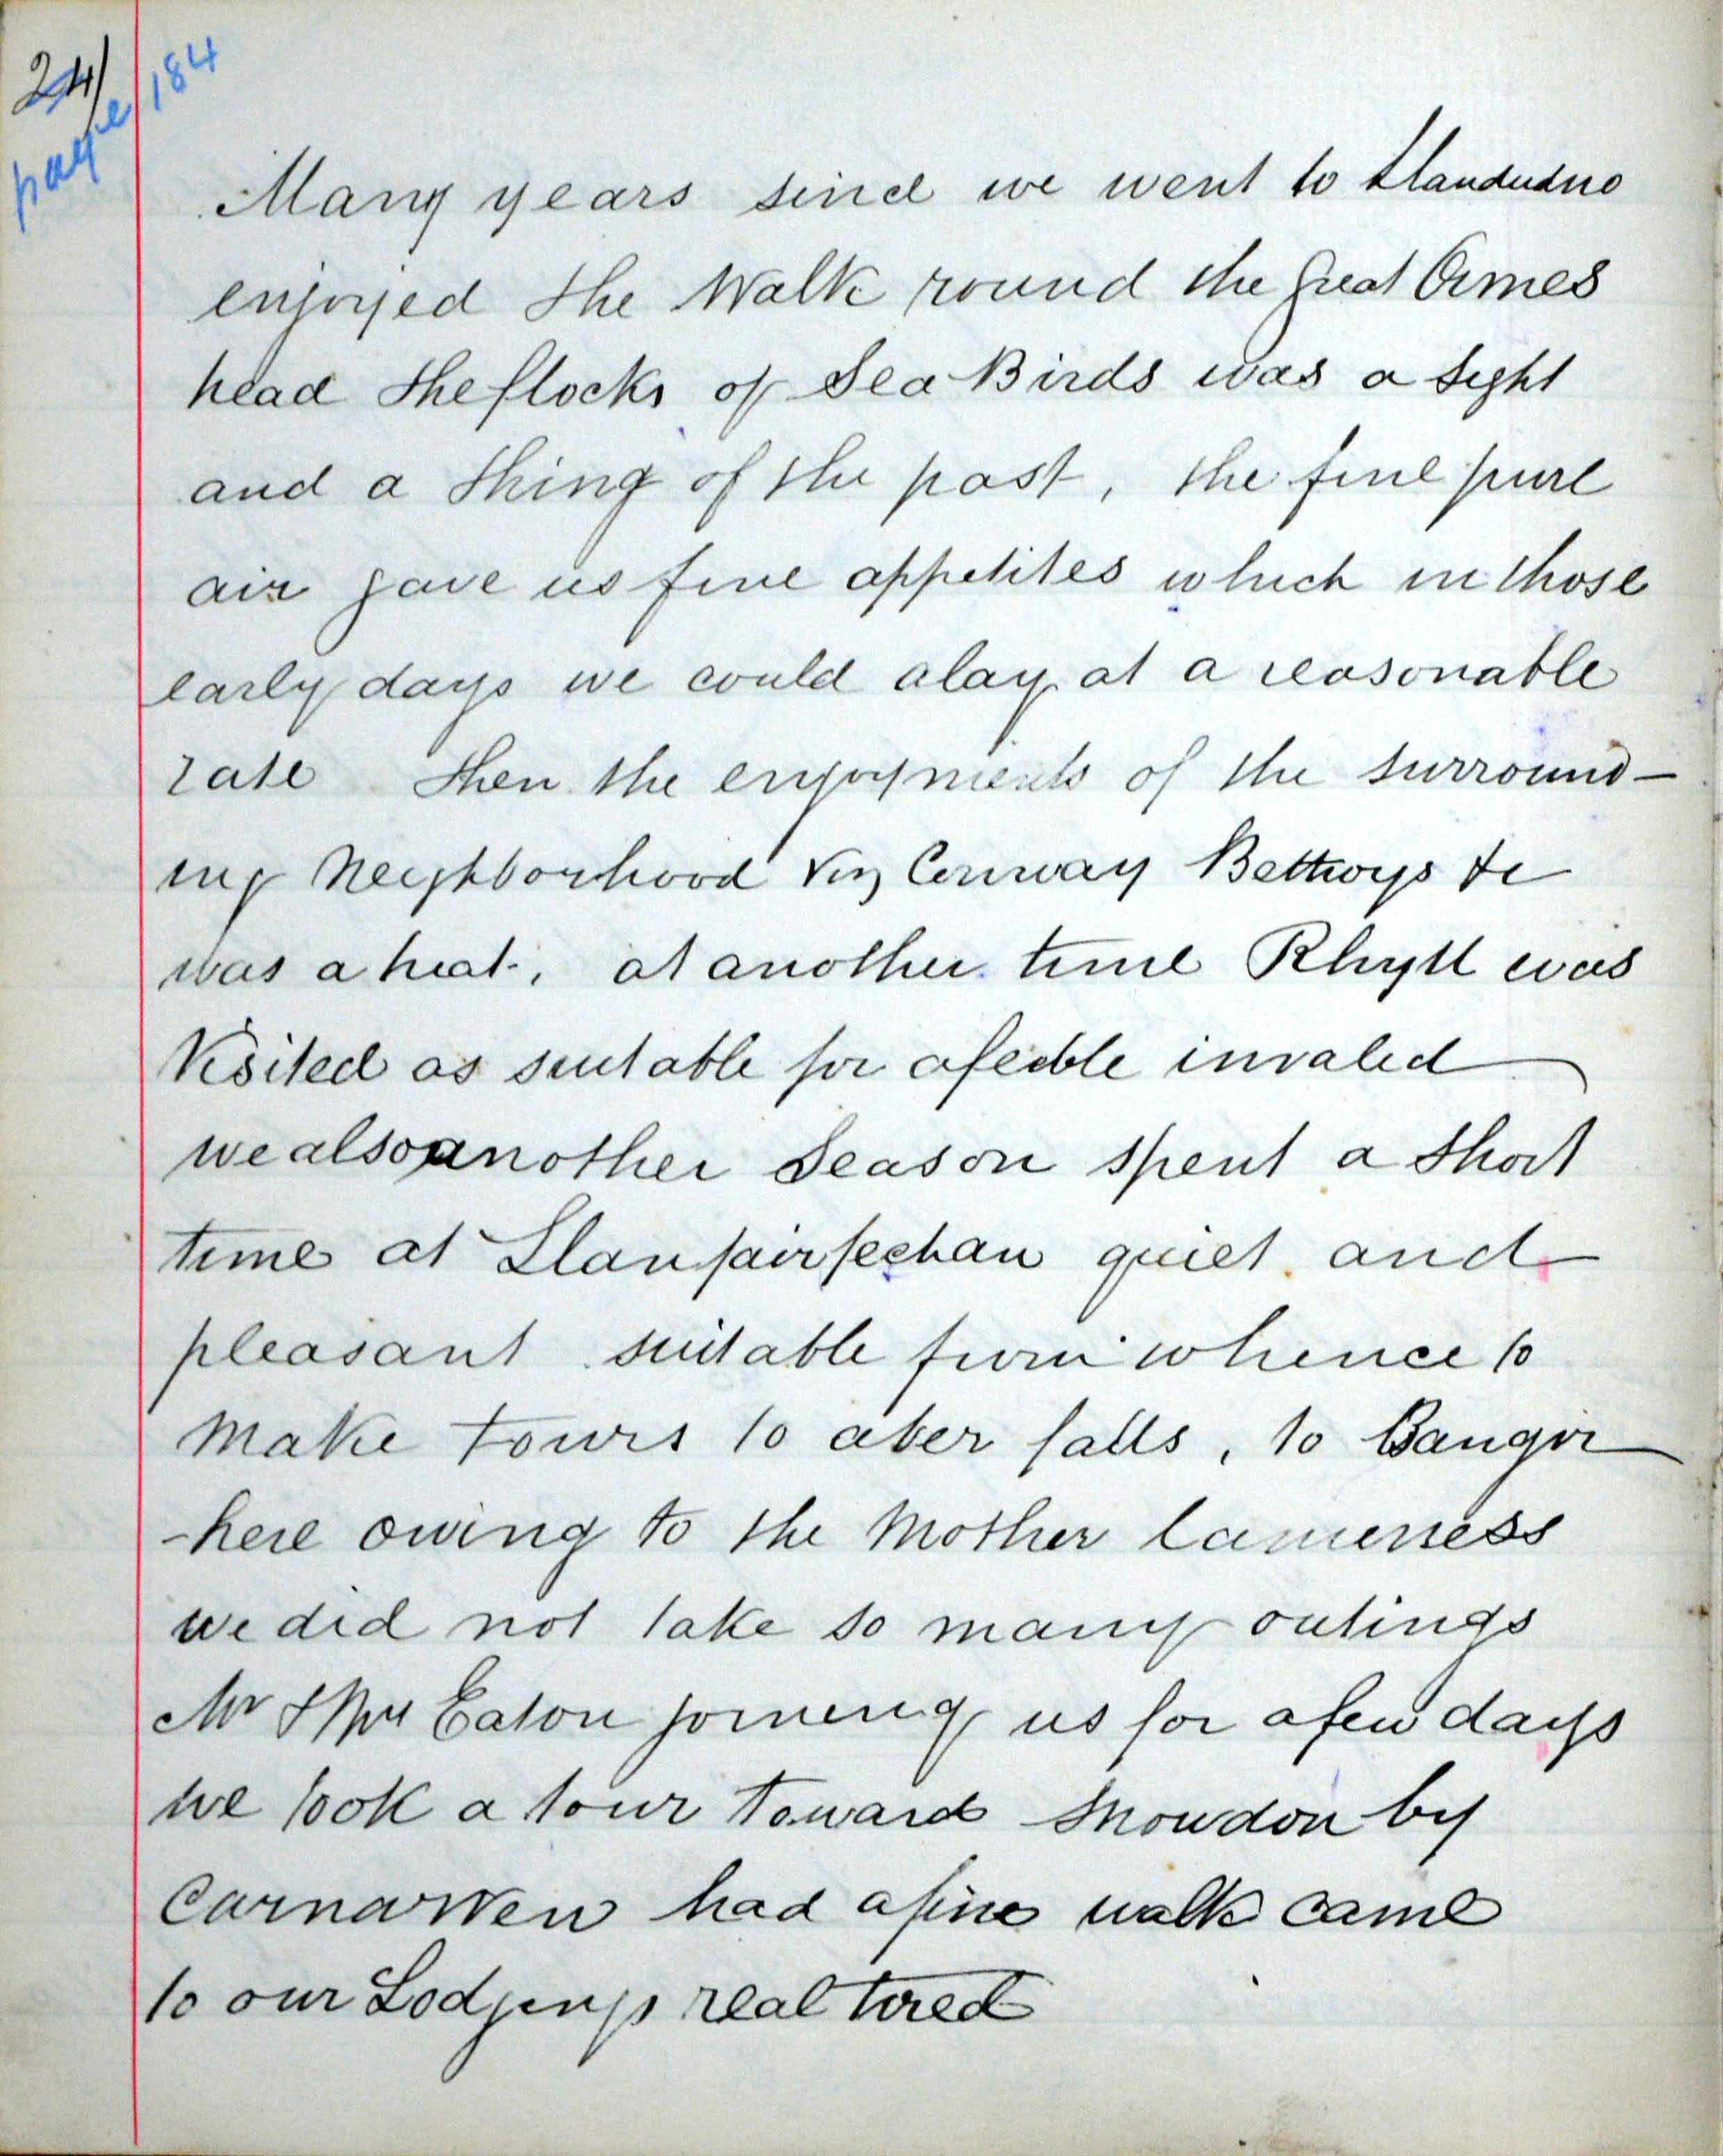 24/
page 184
Many years since we went to Llandudno
enjoyed the Walk round the Great Ormes
head the flocks of Sea Birds was a sight
and a thing of the past, the fine pure
air gave us fine appetites which in those
early days we could alay at a reasonable
rate then the enjoyments of the surround-
ing Neighborhood Viz Conway Bettwys &c
was a treat, at another time Rhyll was
Visited as suitable for a feeble invalid
we also another Season spent a short
time at Llanfairfechan quiet and
pleasant suitable from whence to
make tours to aber falls, to Bangor
-here owing to the Mother lameness
we did not take so many outings
Mr & Mrs Eaton joineng us for a few days
we took a tour toward Snowdon by
Carnarven had a fine walk came
to our Lodgings real tired